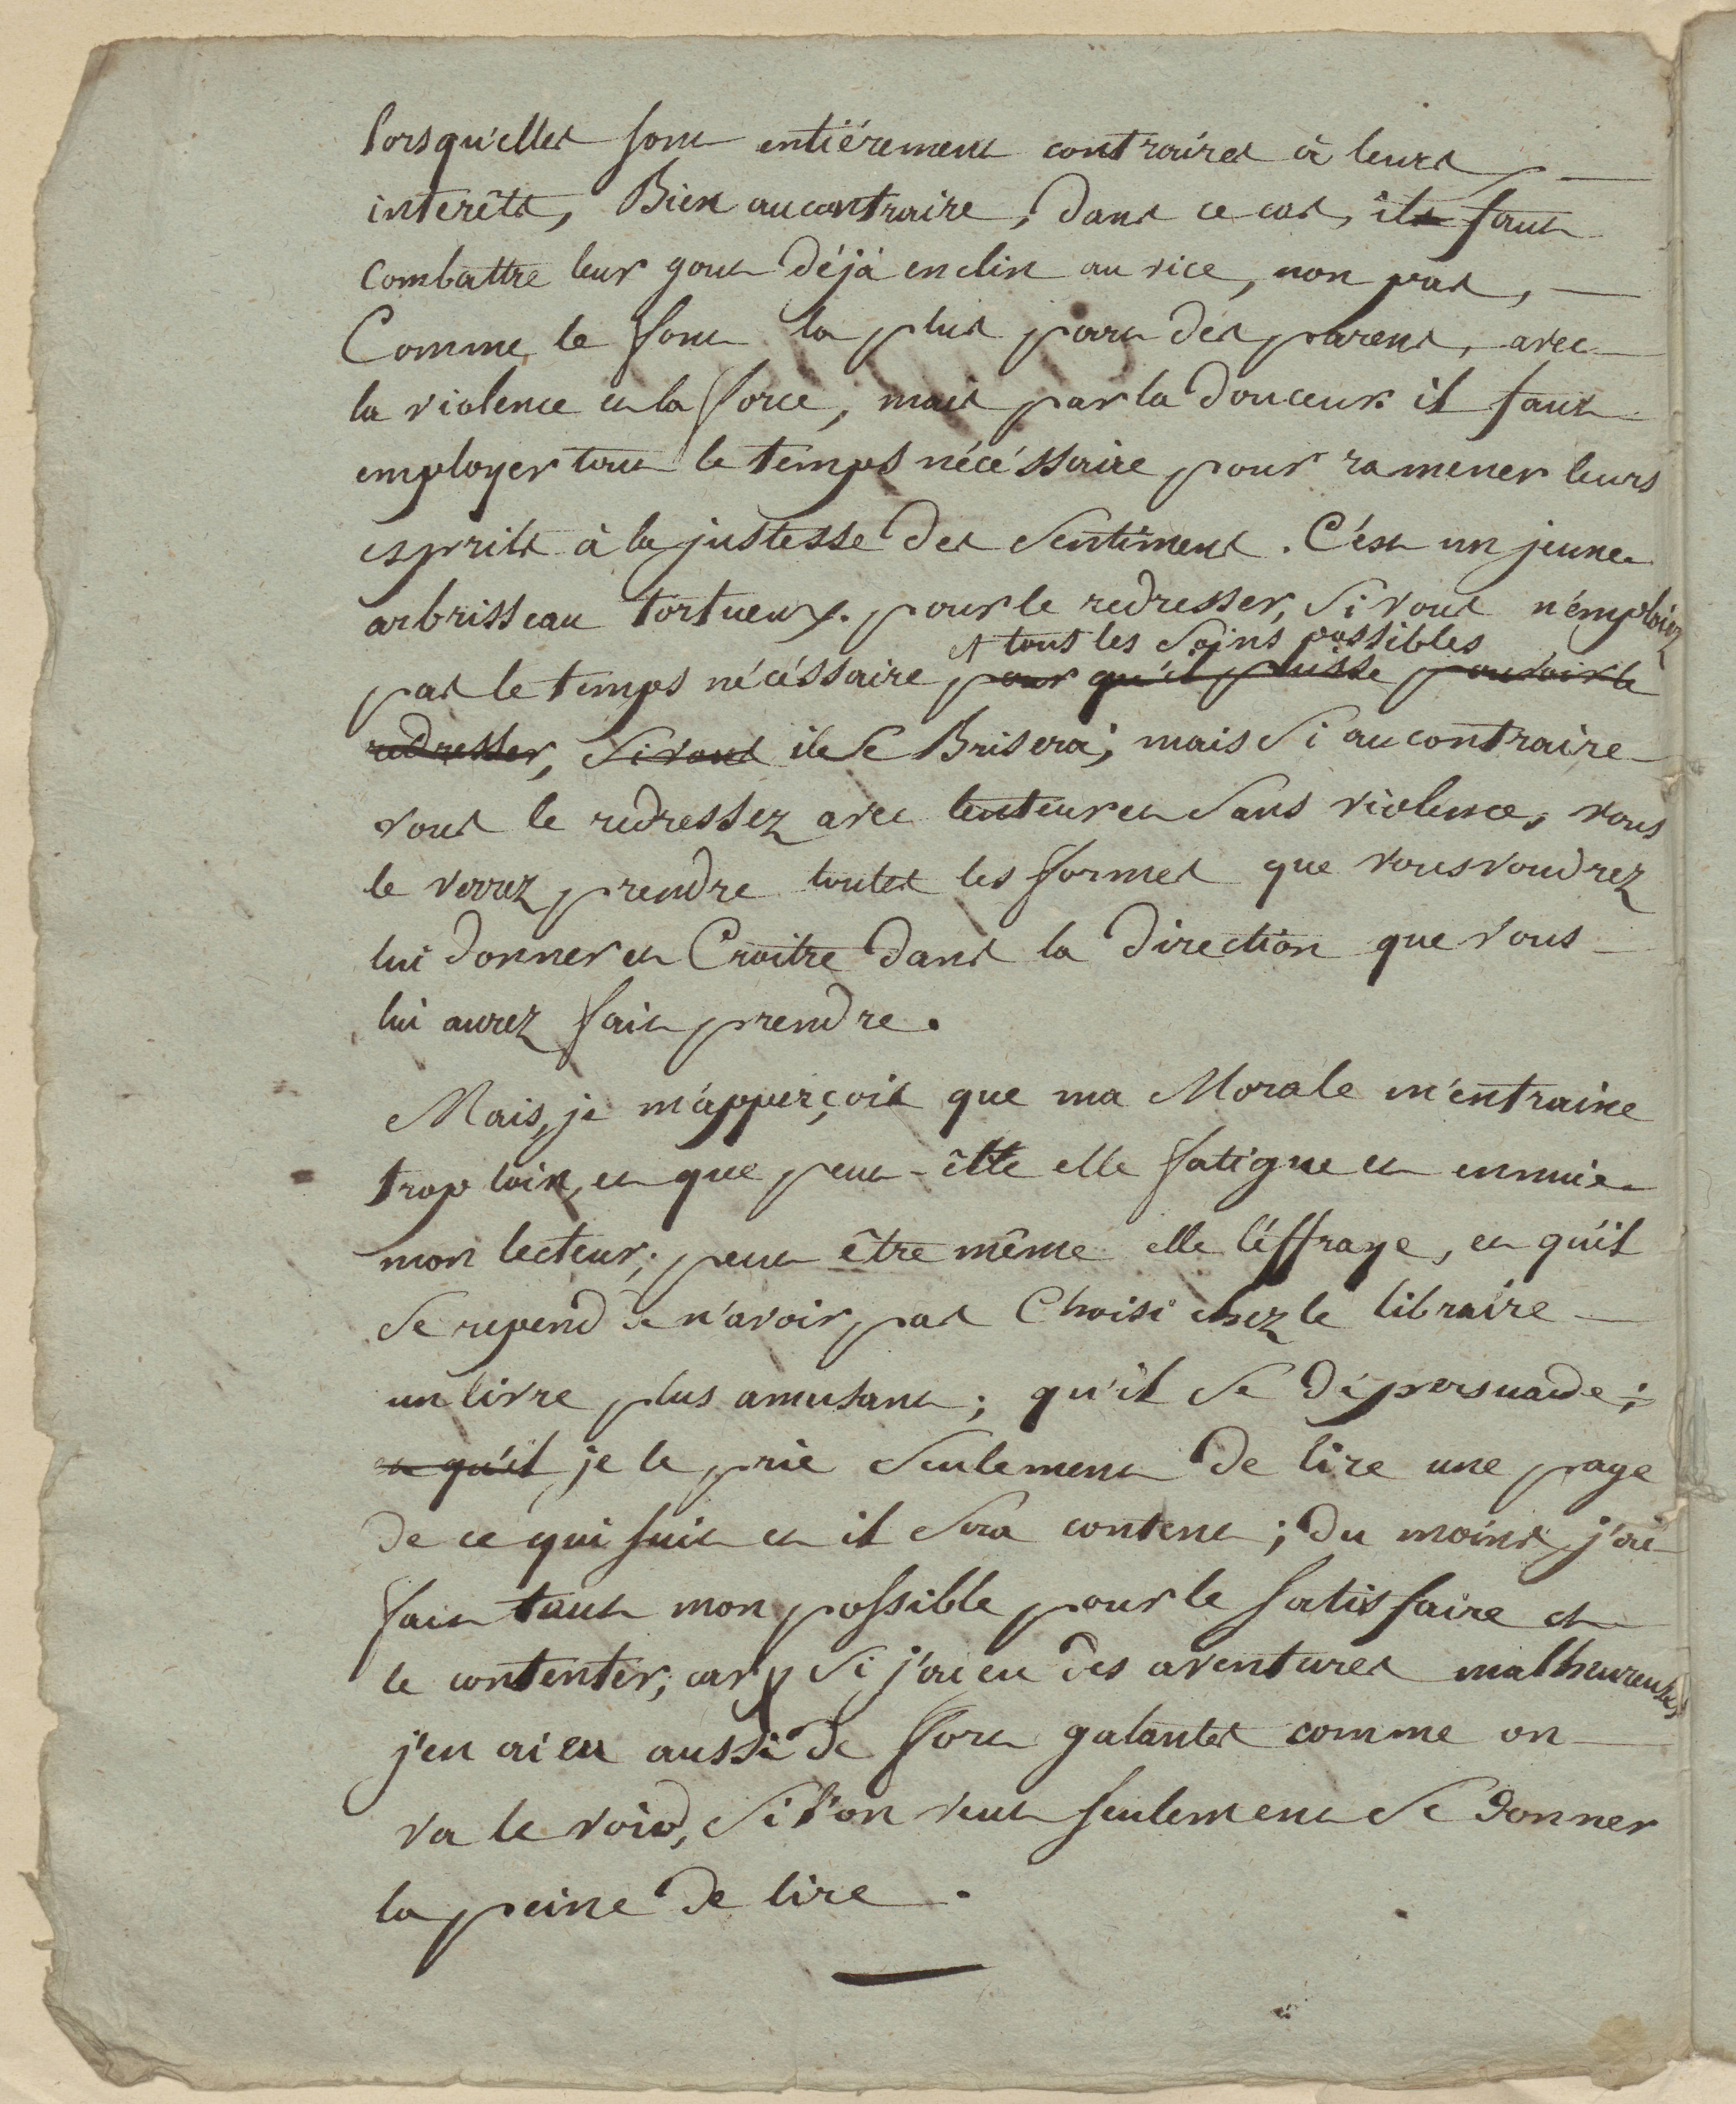 lorsqu'elles sont entiérement contraires à leurs
interêts, Bien au contraire, dans ce cas, il faut
Combattre leur gout déjà enclin au vice, non pas,
Comme le font la plus part des parens, avec
la violence et la force, mais par la douceur. il faut
employer tout le temps nécéssaire pour ramener leurs
esprits à la justesse des Sentimens. C'est un jeune
arbrisseau tortueux. pour le redresser, Si vous n'emploiez
et tous les Soins possibles
pas le temps nécéssaire pour qu'il puisse pouvoir le
redresser, Si vous il se Brisera; mais Si au contraire
vous le redressez avec lenteur et Sans violence, vous
le verrez prendre toutes les formes que vous voudrez
lui donner et Croitre dans la direction que vous
lui aurez fait prendre.
Mais, je m'apperçois que ma Morale m'entraine
trop loin, et que peut-être elle fatigue et ennuie
mon lecteur; peut être même elle l'éffraye, et qu'il
Se repend de n'avoir pas Choisi chez le libraire
un livre plus amusant; qu'il Se dépersuade;
et qu'il je le prie Seulement de lire une page
de ce qui suit et il Sera content; du moins j'ai
fait tout mon possible pour le satisfaire et
le contenter; car Si j'ai eu des aventures malheureuses
j'en ai eu aussi de fort galantes comme on
va le voir, Si l'on veut seulement Se donner
la peine de lire.